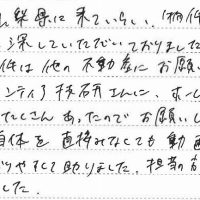 山梨県に来ていらい、物件
探していただいておりました
件は他の不動産にお願い
さんに、ホーム
たくさんあったのでお願いし
自体を直接みなくても動画
りやすくて助かりました。担当の方
した。